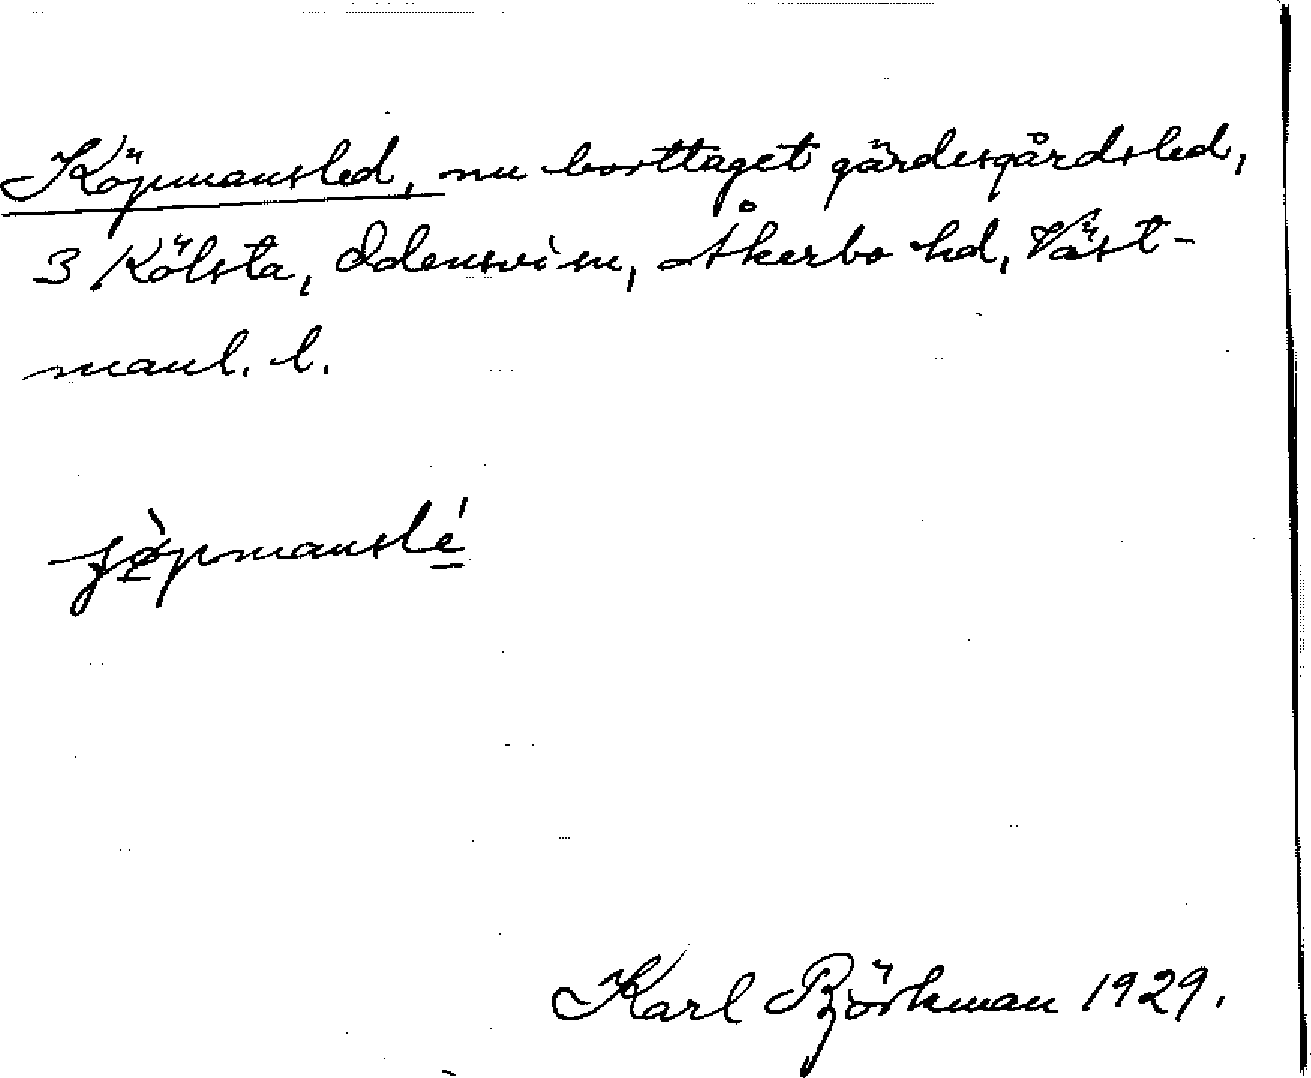 Köpmansled, nu borttaget gärdesgårdsled,
3 Kölsta, Odensvi sn, Åkerbo hd, Väst-
manl. l.
Karl Björkman 1929.